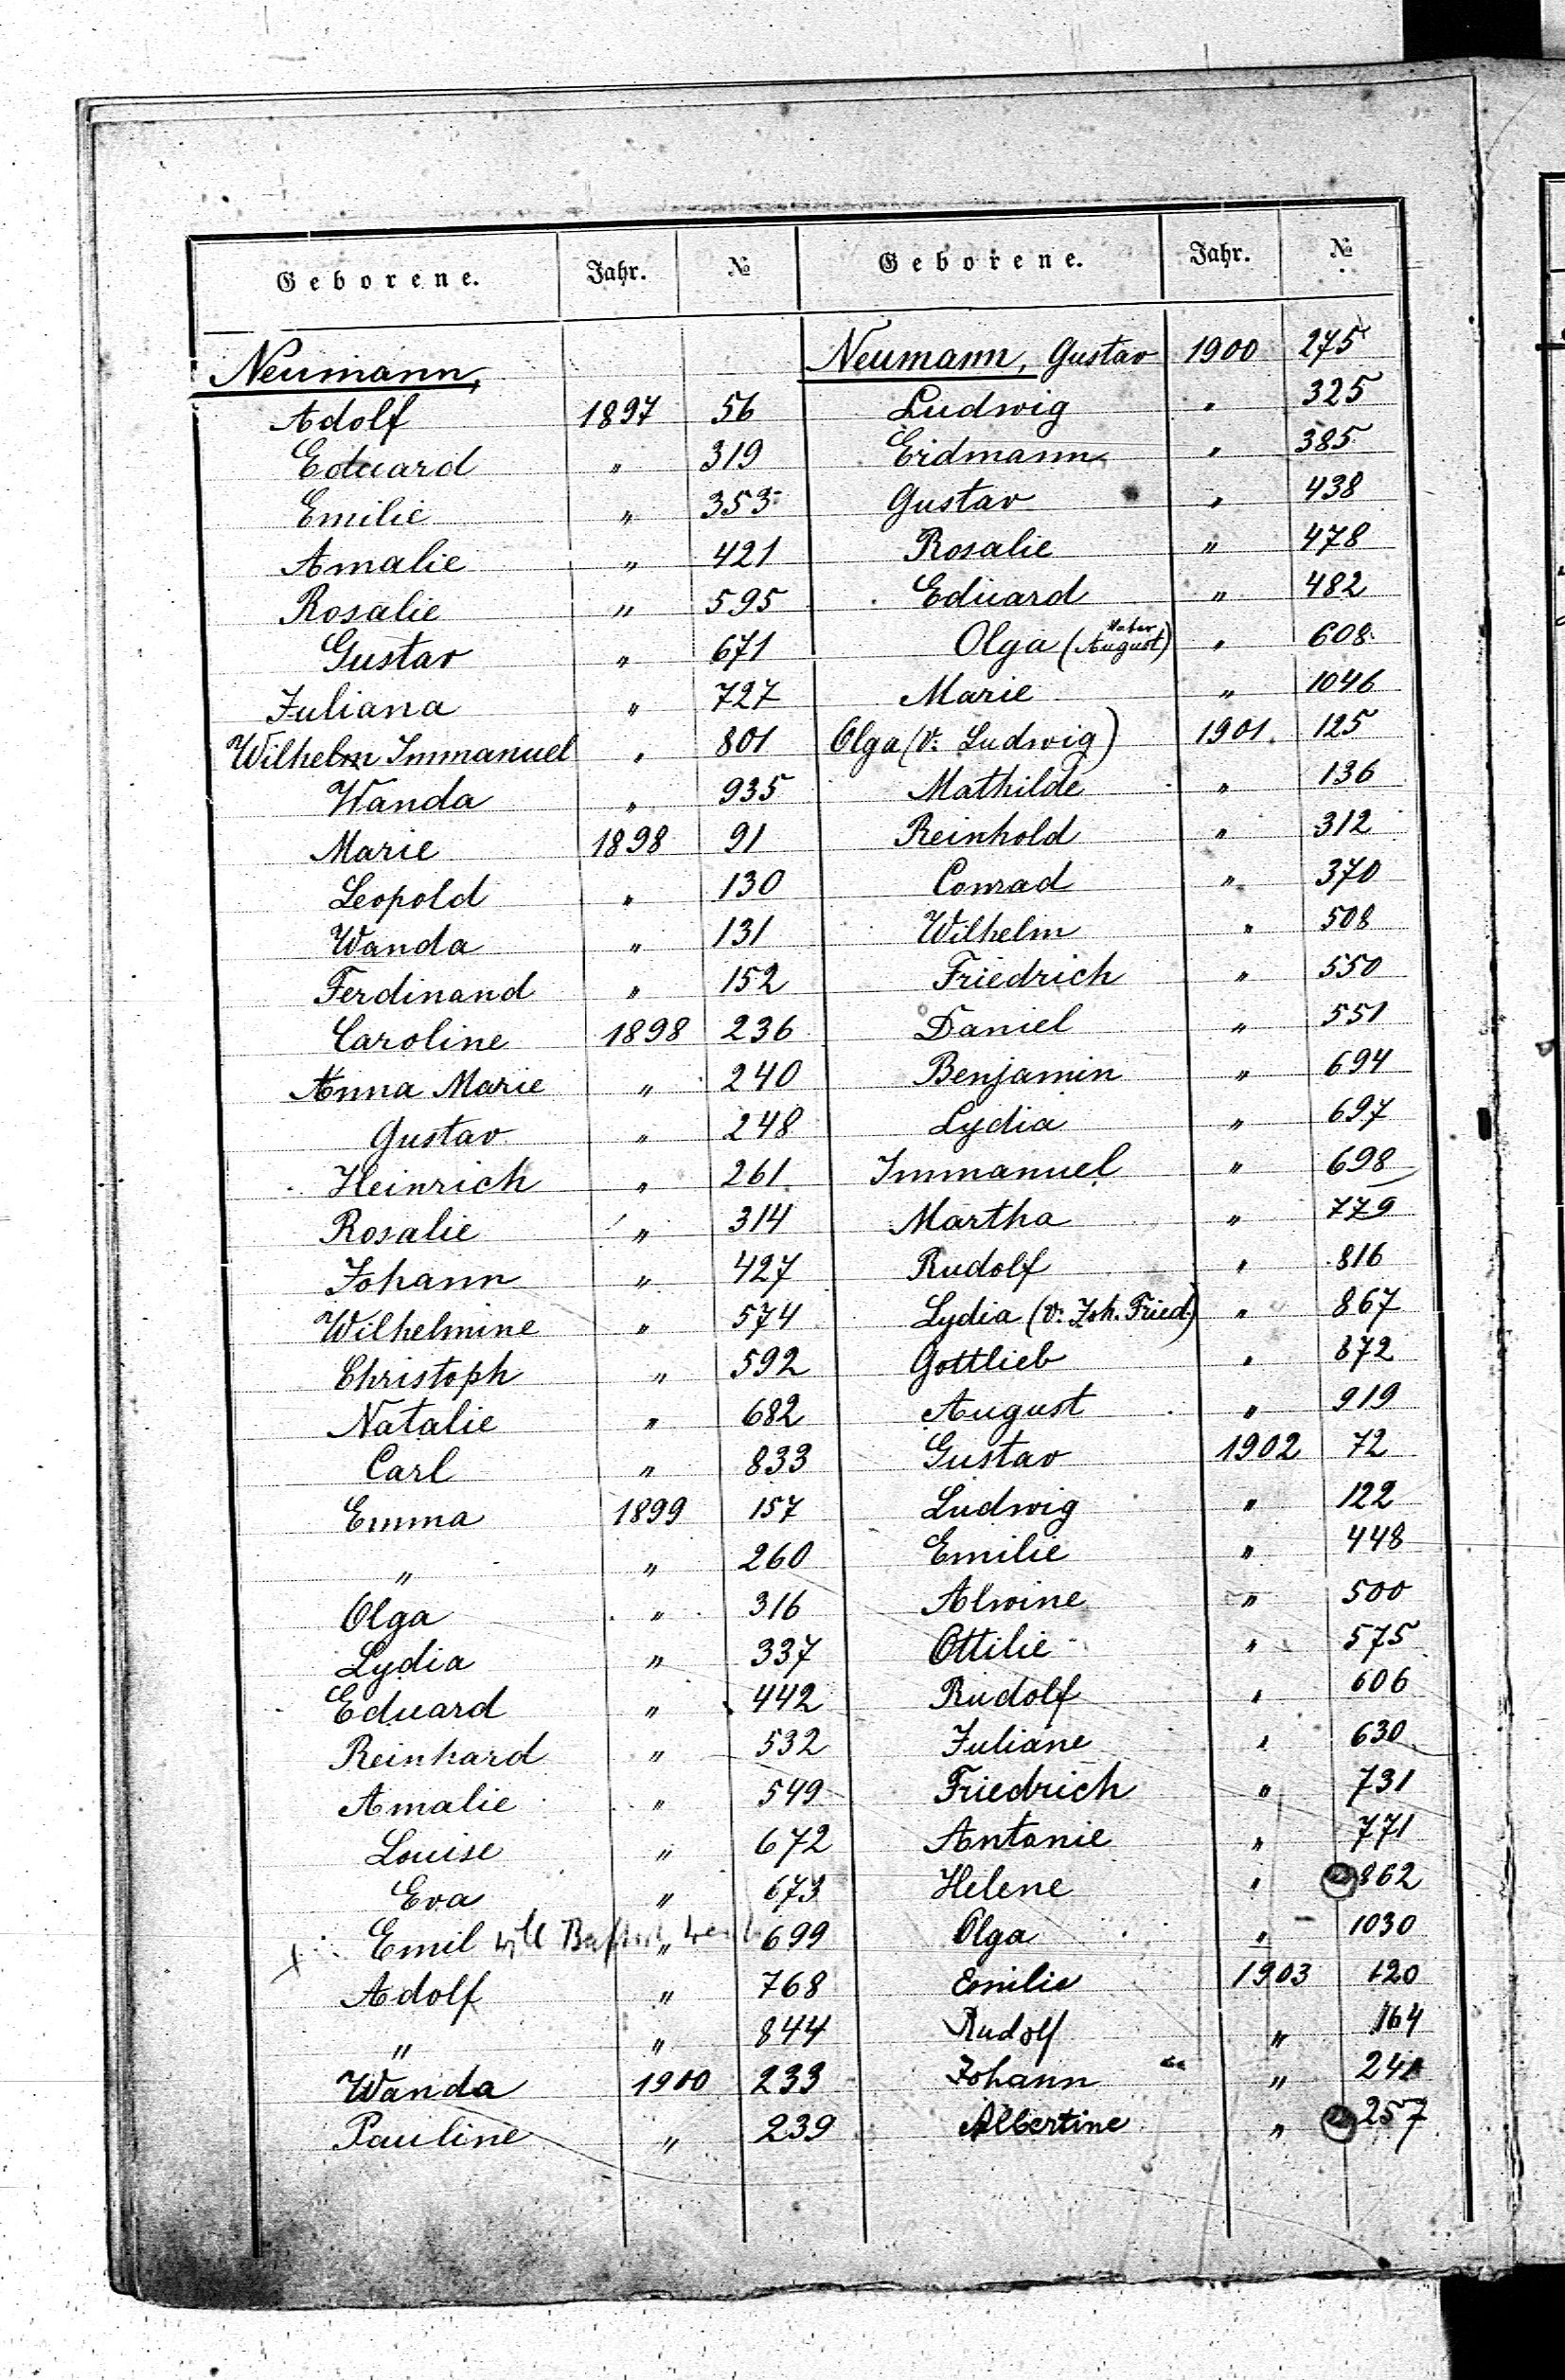 Geborene. Jahr. №
Neumann,
Adolf 1897 56
Eduard " 319
Emilie " 353
Amalie " 421
Rosalie " 595
Gustav " 671
Juliana " 727
Wilhelm Immanuel " 801
Wanda " 935
Marie 1898 91
Leopold " 130
Wanda " 131
Ferdinand " 152
Caroline 1898 236
Anna Marie " 240
Gustav " 248
Heinrich " 261
Rosalie " 314
Johann " 427
Wilhelmine " 574
Christoph " 592
Natalie " 682
Carl " 833
Emma 1899 157
" " 260
Olga " 316
Lydia " 337
Eduard " 442
Reinhard " 532
Amalie " 549
Louise " 672
Eva " 673
x Emil will " 699
Adolf " 768
" " 844
Wanda 1900 233
Pauline " 239
Geborene. Jahr. №
Neumann, Gustav 1900 275
Ludwig " 325
Erdmann " 385
Gustav " 438
Rosalie " 478
Eduard " 482
Olga (Vater August) " 608
Marie " 1046
Olga (V. Ludwig) 1901 125
Mathilde " 136
Reinhold " 312
Conrad " 370
Wilhelm " 508
Friedrich " 550
Daniel " 551
Benjamin " 694
Lydia " 697
Immanuel " 698
Martha " 779
Rudolf " 816
Lydia (V. Joh. Fried.) " 867
Gottlieb " 872
August " 919
Gustav 1902 72
Ludwig " 122
Emilie " 448
Alwine " 500
Ottilie " 575
Rudolf " 606
Juliane " 630
Friedrich " 731
Antonie " 771
Helene " 862
Olga " 1030
Emilie 1903 120
Rudolf " 164
Johann "
Albertine " 257